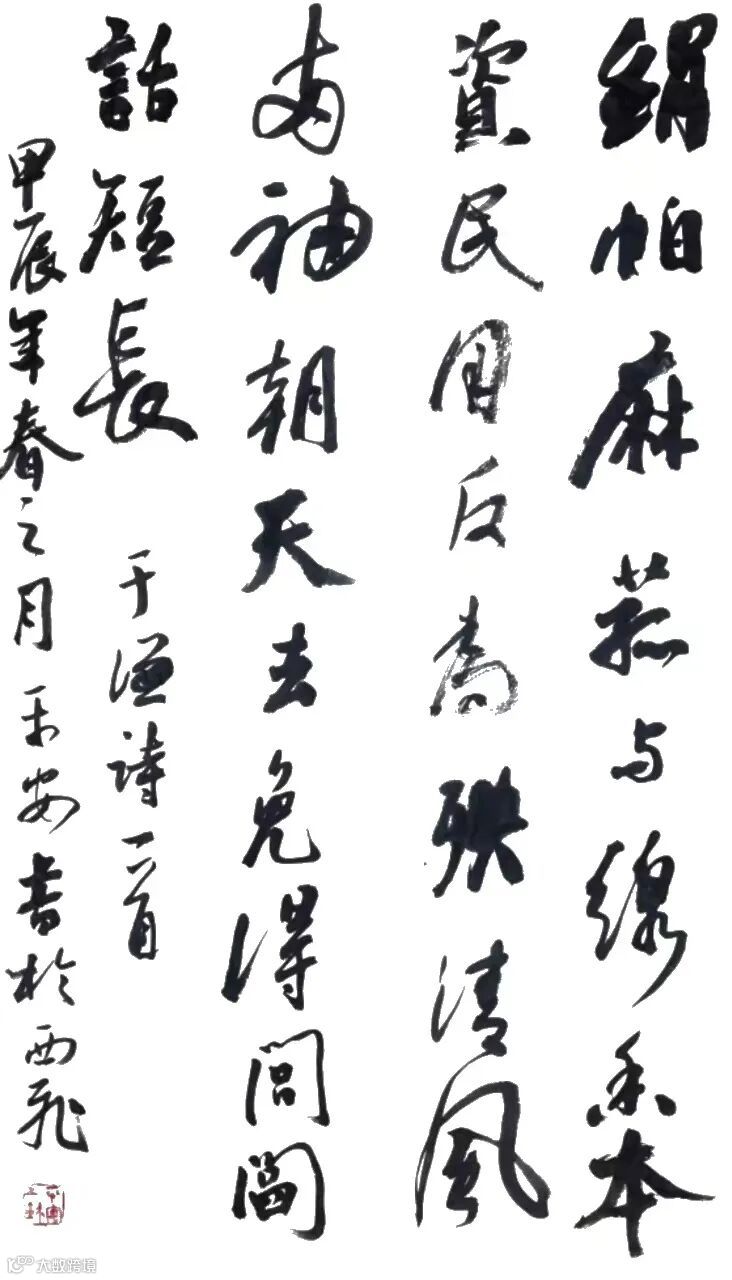 絹帕麻菇与線香本
資民用反為殃清風
两袖朝天去免得閭閻
話短長 于謙詩一首
甲辰年春之月 安書於西飛
大数跨境